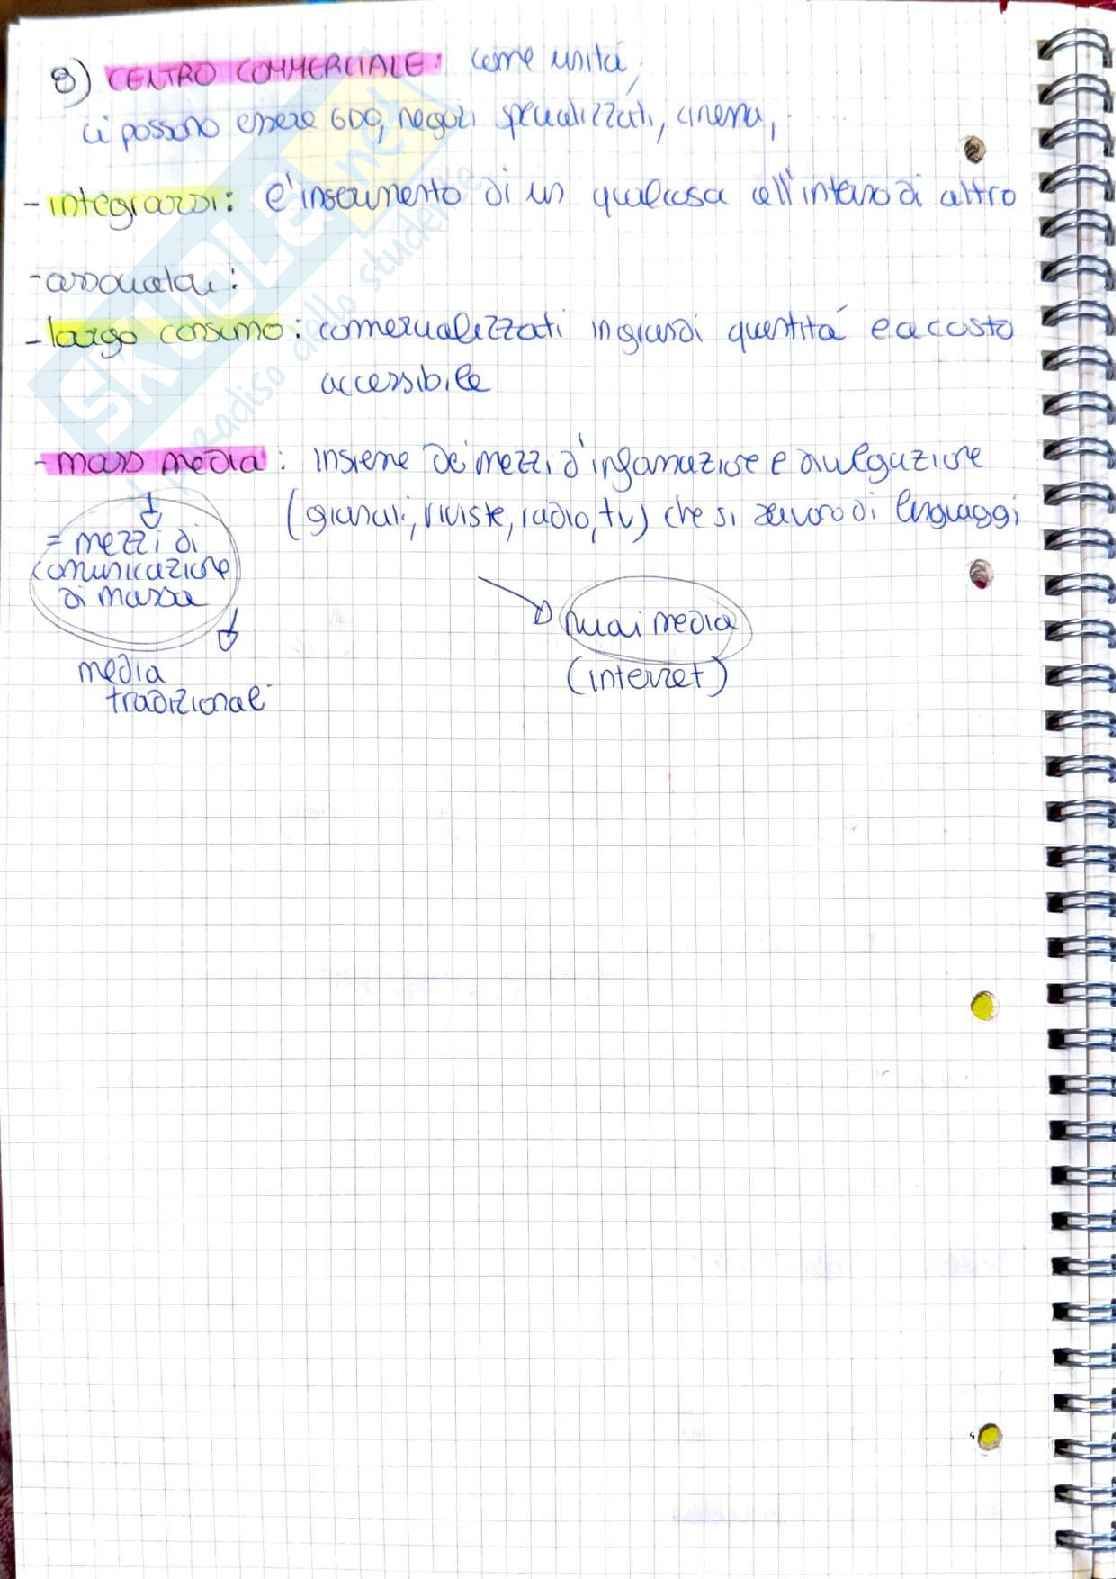 8) CENTRO COMMERCIALE: come unità,
ci possono essere GDO, negozi specializzati, cinema,
- integrarsi: è l'inserimento di un qualcosa all'interno di altro
- associata:
- largo consumo: comercializzati in grandi quantità e a costo
accessibile
- mass media: insieme dei mezzi d'informazione e divulgazione
(giornali, riviste, radio, tv) che si servono di linguaggi
= mezzi di
comunicazione
di massa
nuovi media
(internet)
media
tradizionali
SKUOLA.net
paradiso dello studente